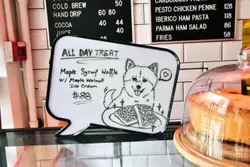 COLD BREW 50
HAND DRIP 60
80
COCOA 80
PESTO CHICKEN PENNE 128
IBERICO HAM PASTA 118
PARMA HAM SALAD
FRIES
ALL DAY TREAT
Maple Syrup Waffle
w/ Maple Walnut
Ice Cream
$88